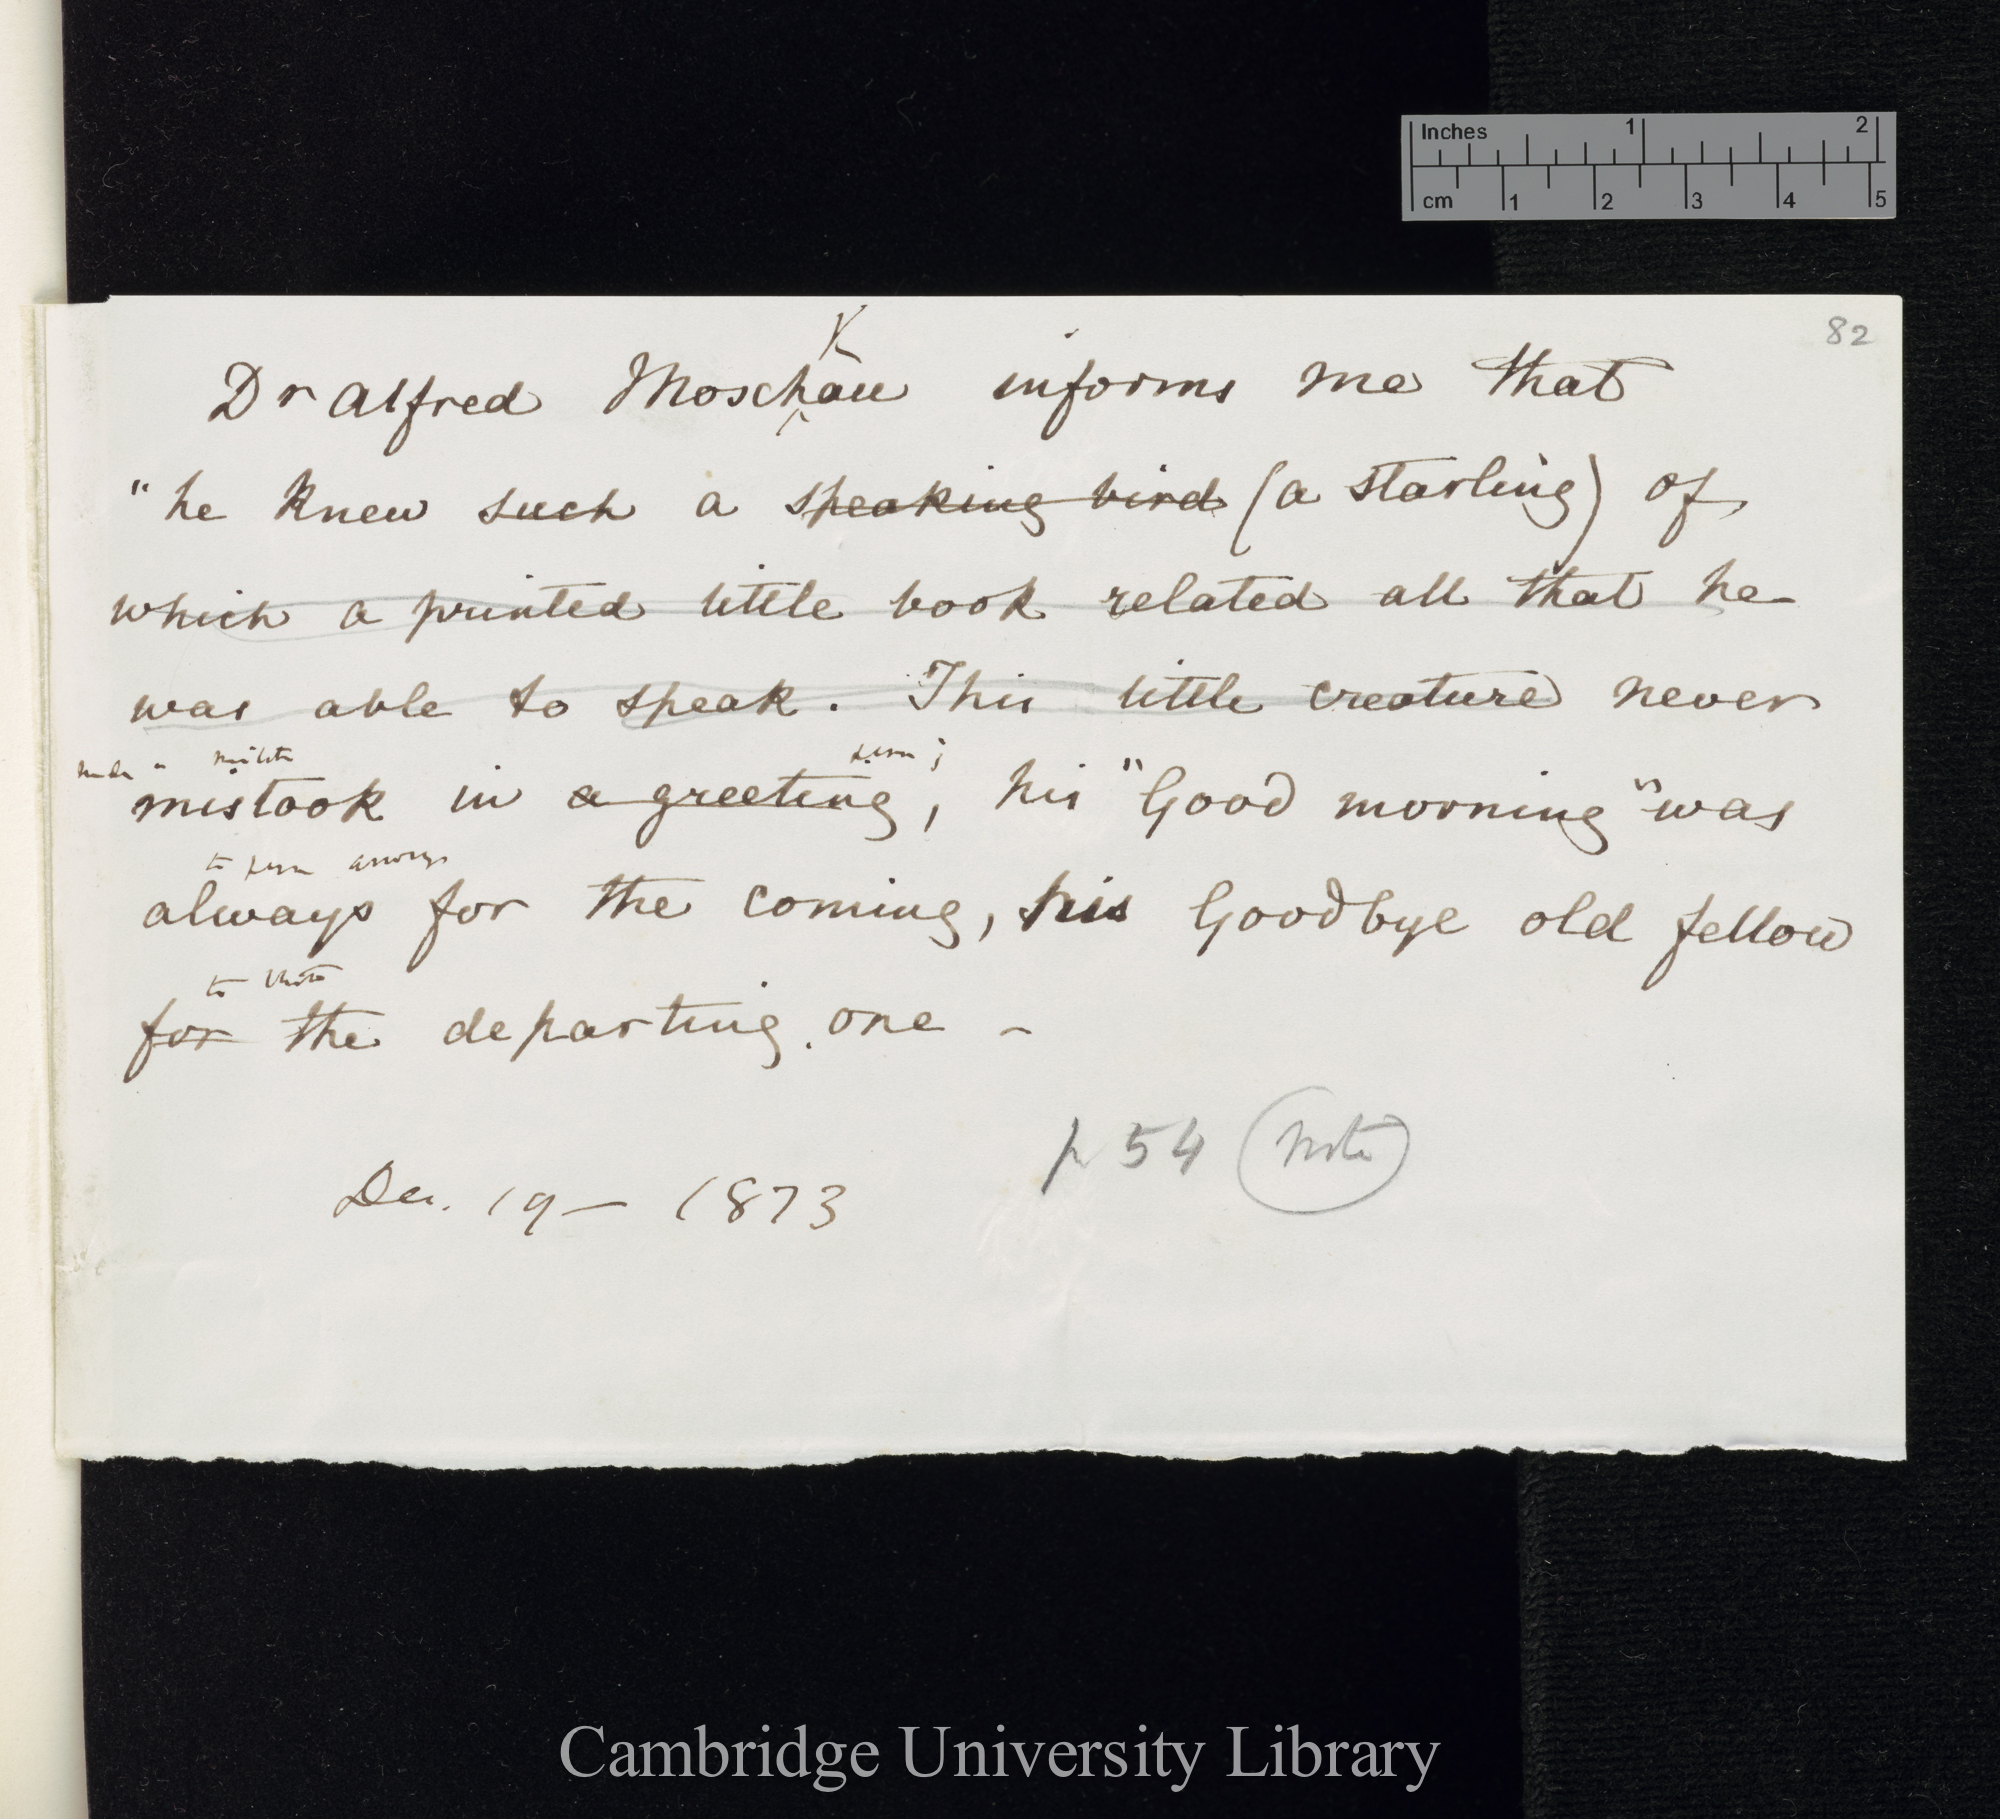 Inches 1 2
cm 1 2 3 4 5
82
K
Dr Alfred Moschau informs me that
"he knew such a speaking bird (a starling) of
which a printed little book related all that he
was able to speak. This little creature never
made a mistake person;
mistook in a greeting, his "Good morning" was
to person arriving
always for the coming, his Goodbye old fellow
to those
for the departing one –
p 54 Note
Dec. 19 – 1873
Cambridge University Library